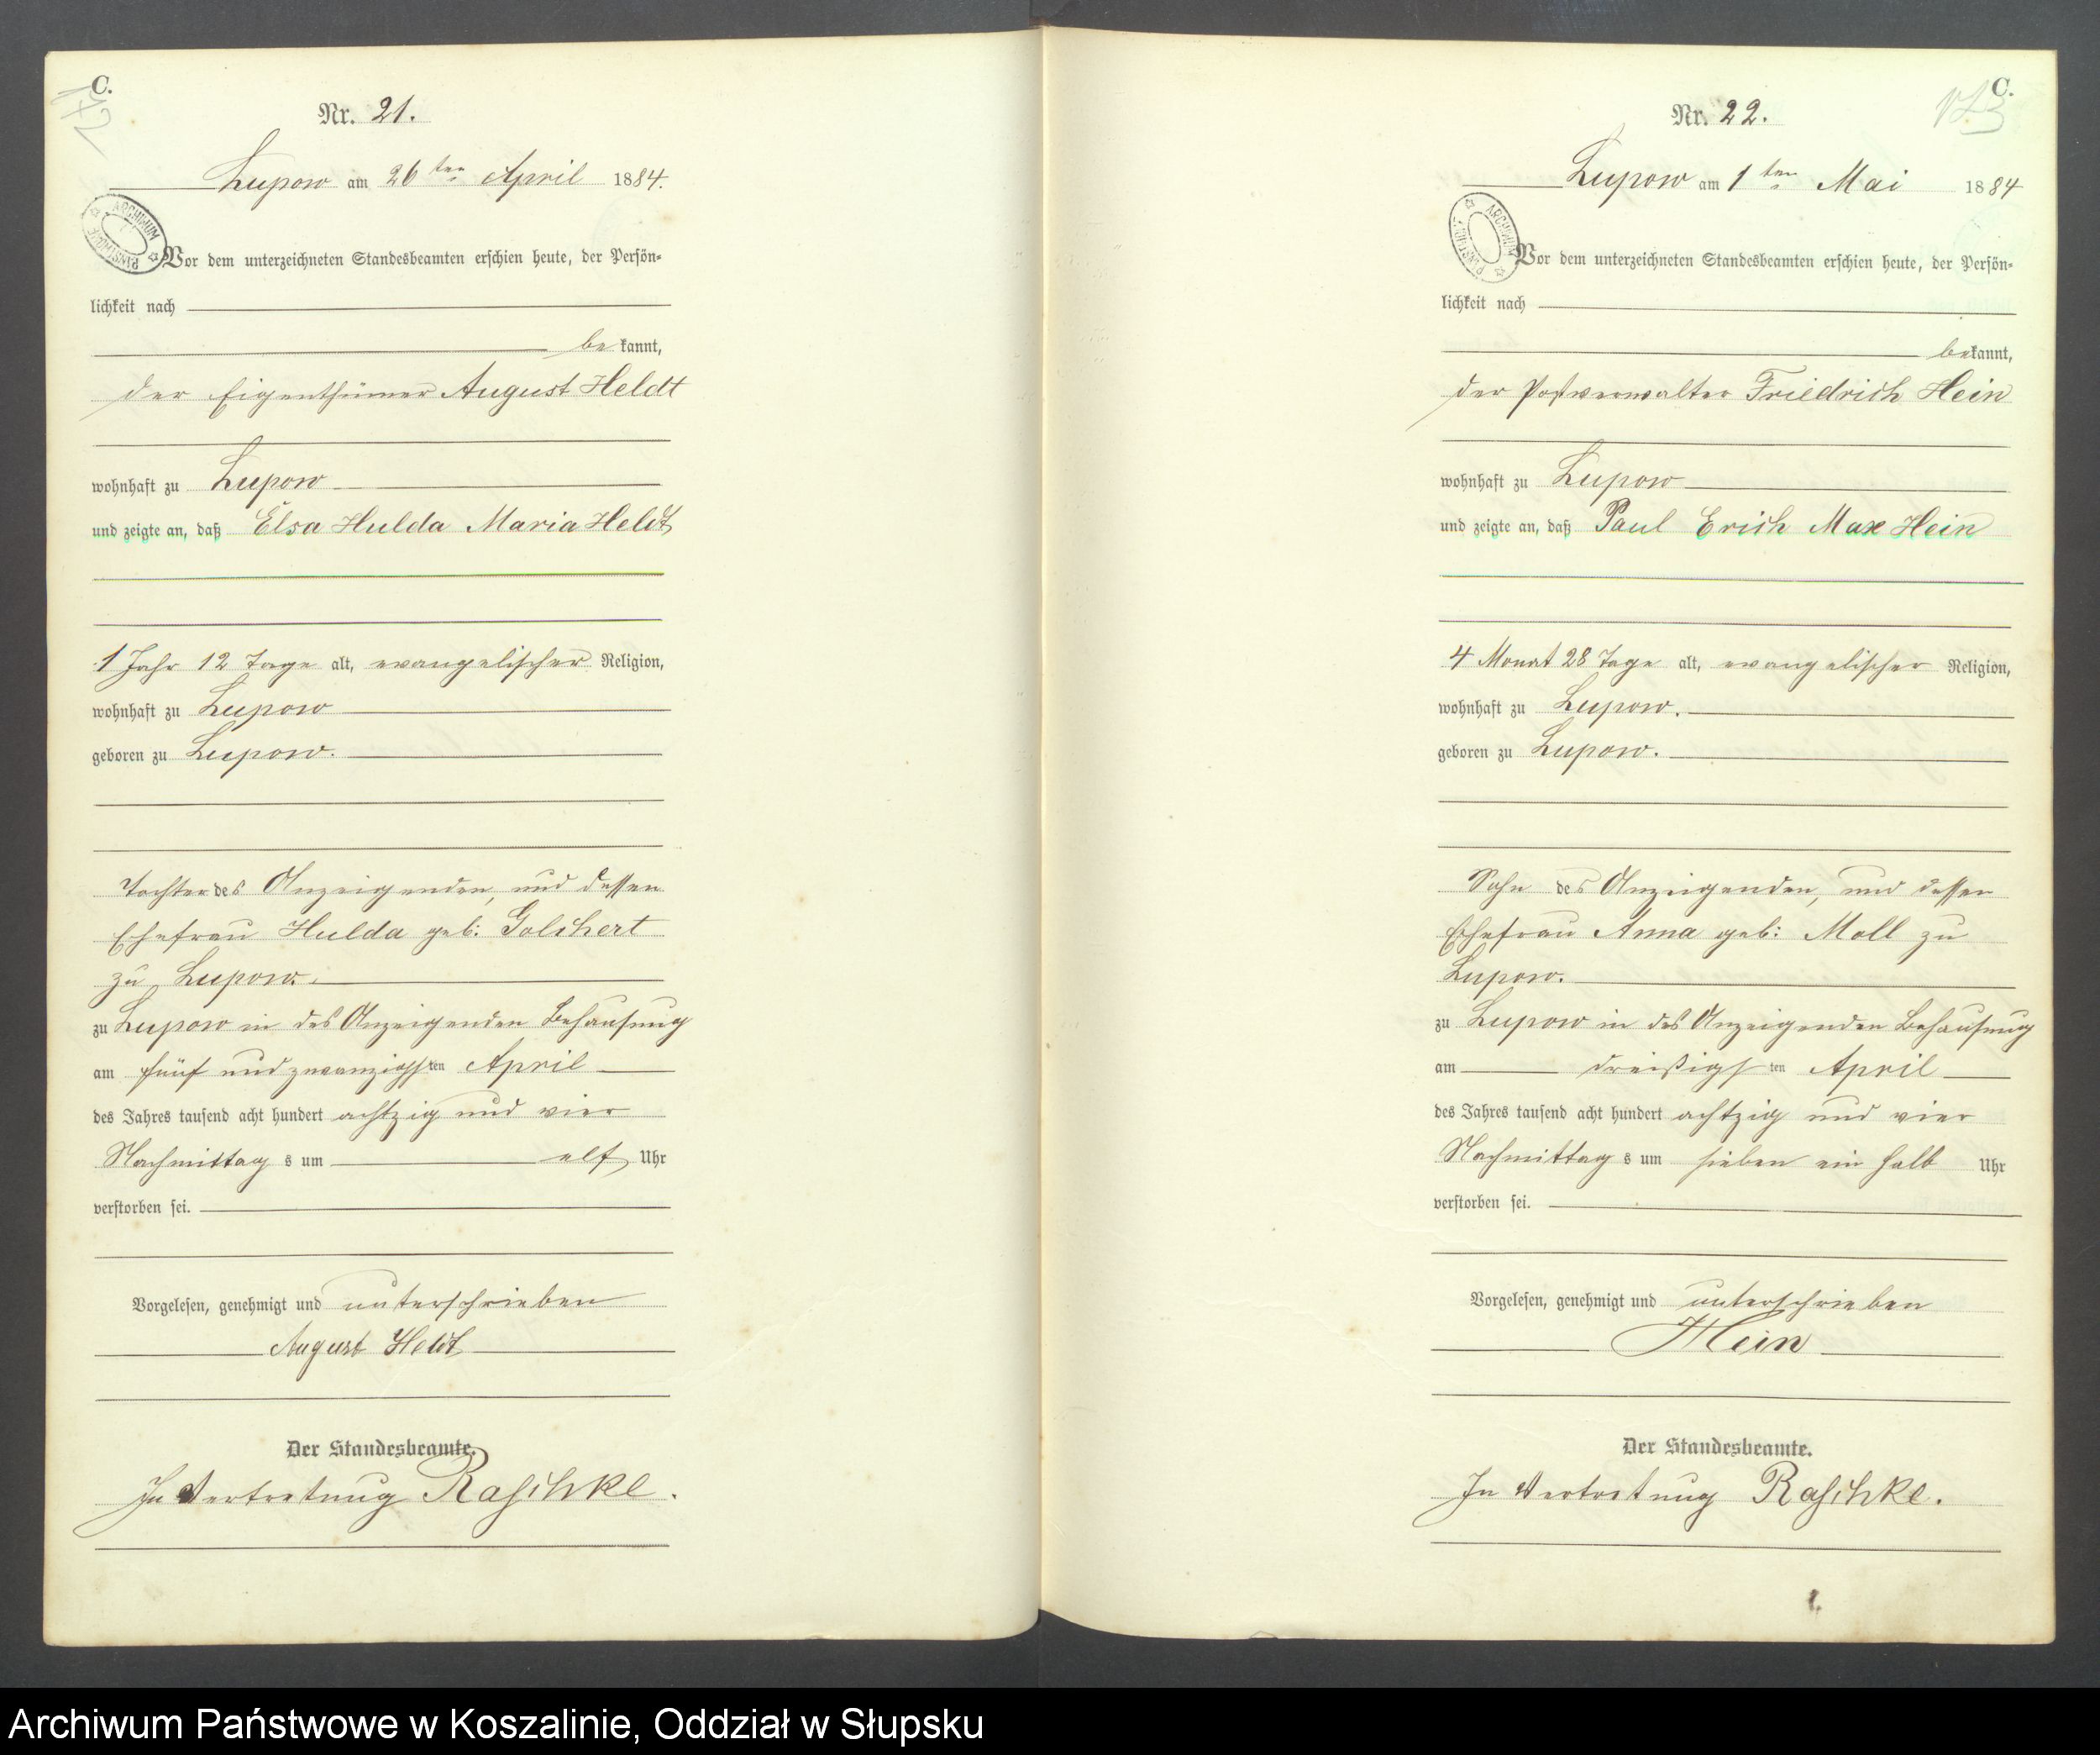 C.
142
Nr. 21.
Lupow am 26ten April 1884.
ARCHIWUM PAŃSTWOWE
Vor dem unterzeichneten Standesbeamten erschien heute, der Persön-
lichkeit nach
bekannt,
der Eigenthümer August Heldt
wohnhaft zu Lupow
und zeigte an, daß Elsa Hulda Maria Heldt
1 Jahr 12 Tage alt, evangelischer Religion,
wohnhaft zu Lupow
geboren zu Lupow.
Tochter des Anzeigenden, und dessen
Ehefrau Hulda geb: Golchert
zu Lupow.
zu Lupow in des Anzeigenden Behausung
am fünf und zwanzigsten April
des Jahres tausend acht hundert achtzig und vier
Nachmittags um elf Uhr
verstorben sei.
Vorgelesen, genehmigt und unterschrieben
August Heldt
Der Standesbeamte.
In Vertretung Raschke.
C.
Nr. 22.
Lupow am 1ten Mai 1884
ARCHIWUM PAŃSTWOWE
Vor dem unterzeichneten Standesbeamten erschien heute, der Persön-
lichkeit nach
bekannt,
der Postverwalter Friedrich Hein
wohnhaft zu Lupow
und zeigte an, daß Paul Erich Max Hein
4 Monat 28 Tage alt, evangelischer Religion,
wohnhaft zu Lupow.
geboren zu Lupow.
Sohn des Anzeigenden, und dessen
Ehefrau Anna geb: Moll zu
Lupow.
zu Lupow in des Anzeigenden Behausung
am dreißigsten April
des Jahres tausend acht hundert achtzig und vier
Nachmittags um sieben ein halb Uhr
verstorben sei.
Vorgelesen, genehmigt und unterschrieben
Hein
Der Standesbeamte.
In Vertretung Raschke.
Archiwum Państwowe w Koszalinie, Oddział w Słupsku